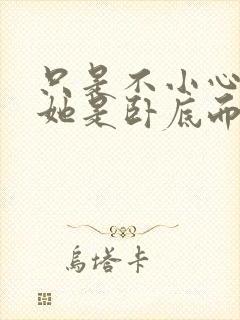 只是不小心
她是卧底而
乌塔卡